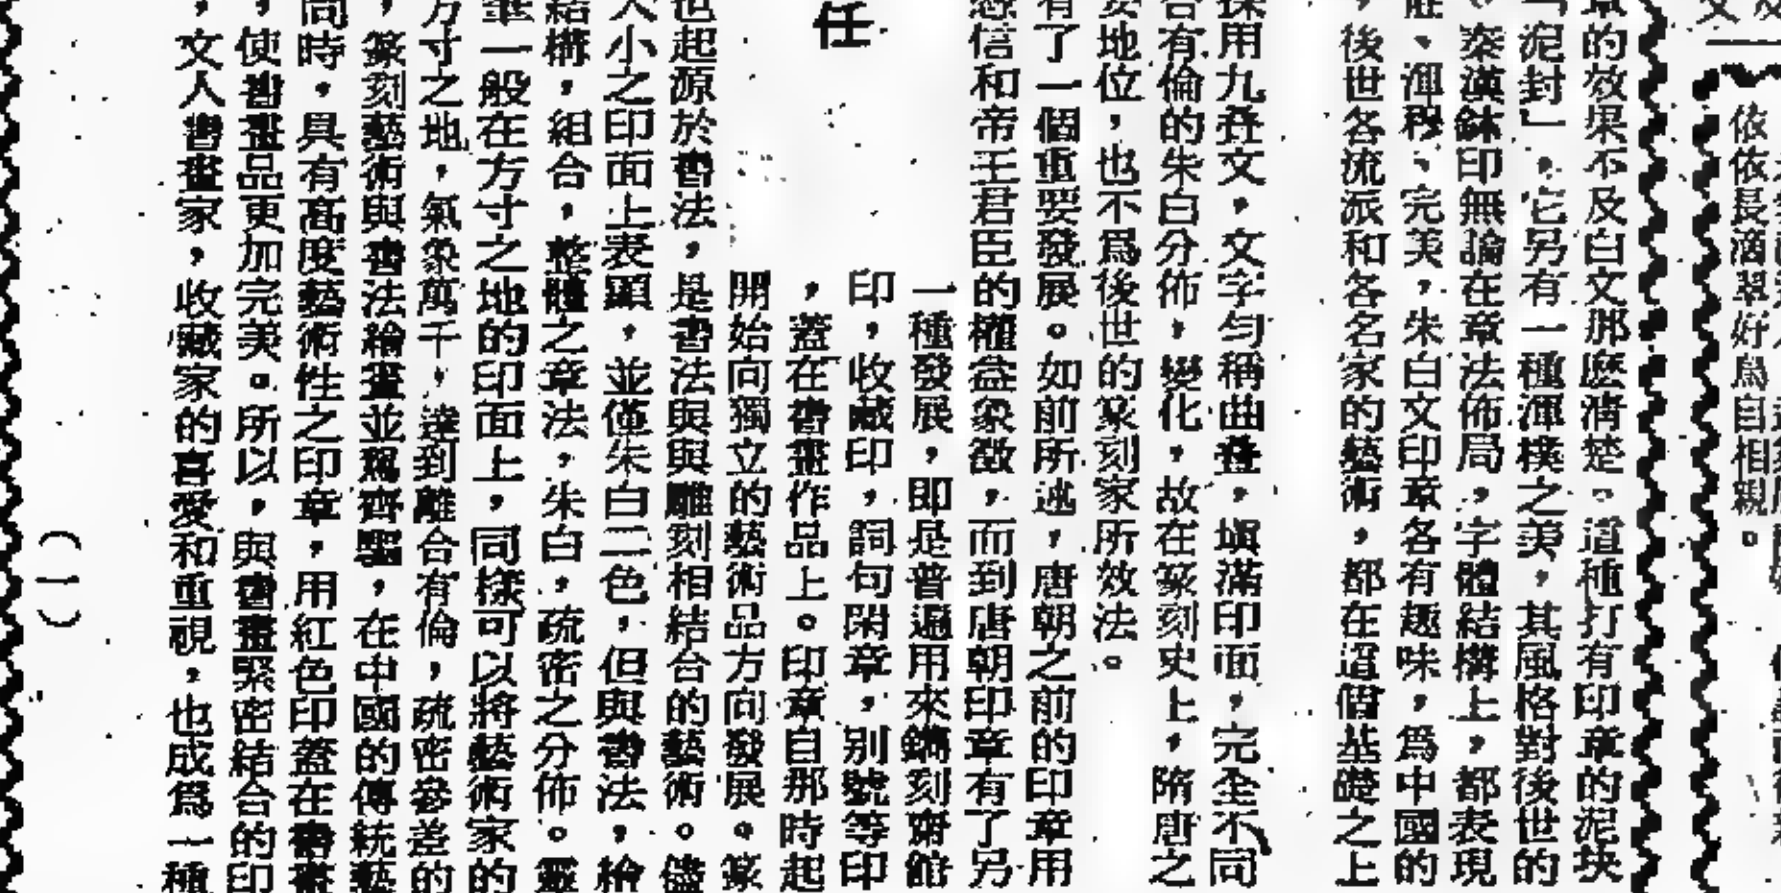 依依長滴翠好鳥自相親。
章的效果不及白文那麽清楚。這種打有印章的泥块
「泥封」，它另有一種渾樸之美，其風格對後世的
、秦漢鉢印無論在章法佈局，字體結構上，都表現
、渾穆、完美，朱白文印章各有趣味，爲中國的
，後世各流派和各名家的藝術，都在這個基礎之上
採用九叠文，文字勻稱曲叠，塡滿印面，完全不同
合有倫的朱白分佈，變化，故在篆刻史上，隋唐之
要地位，也不爲後世的篆刻家所效法。
有了一個重要發展。如前所述，唐朝之前的印章用
信和帝王君臣的權益象徵，而到唐朝印章有了另
一種發展，即是普遍用來鐫刻齋館
印，收藏印，詞句閑章，別號等印
，蓋在書畫作品上。印章自那時起
開始向獨立的藝術品方向發展。篆
也起源於書法，是書法與與雕刻相結合的藝術。儘
大小之印面上表顯，並僅朱白二色，但與書法，
結構，組合，整體之章法，朱白，疏密之分佈。靈
筆一般在方寸之地的印面上，同樣可以將藝術家的
方寸之地，氣象萬千，達到離合有倫，疏密參差的
，篆刻藝術與書法繪畫並駕齊驅，在中國的傳統藝
同時，具有高度藝術性之印章，用紅色印蓋在書畫
，使書畫品更加完美。所以，與書畫緊密結合的印
，文人書畫家，收藏家的喜愛和重視，也成爲一種
任
（一）